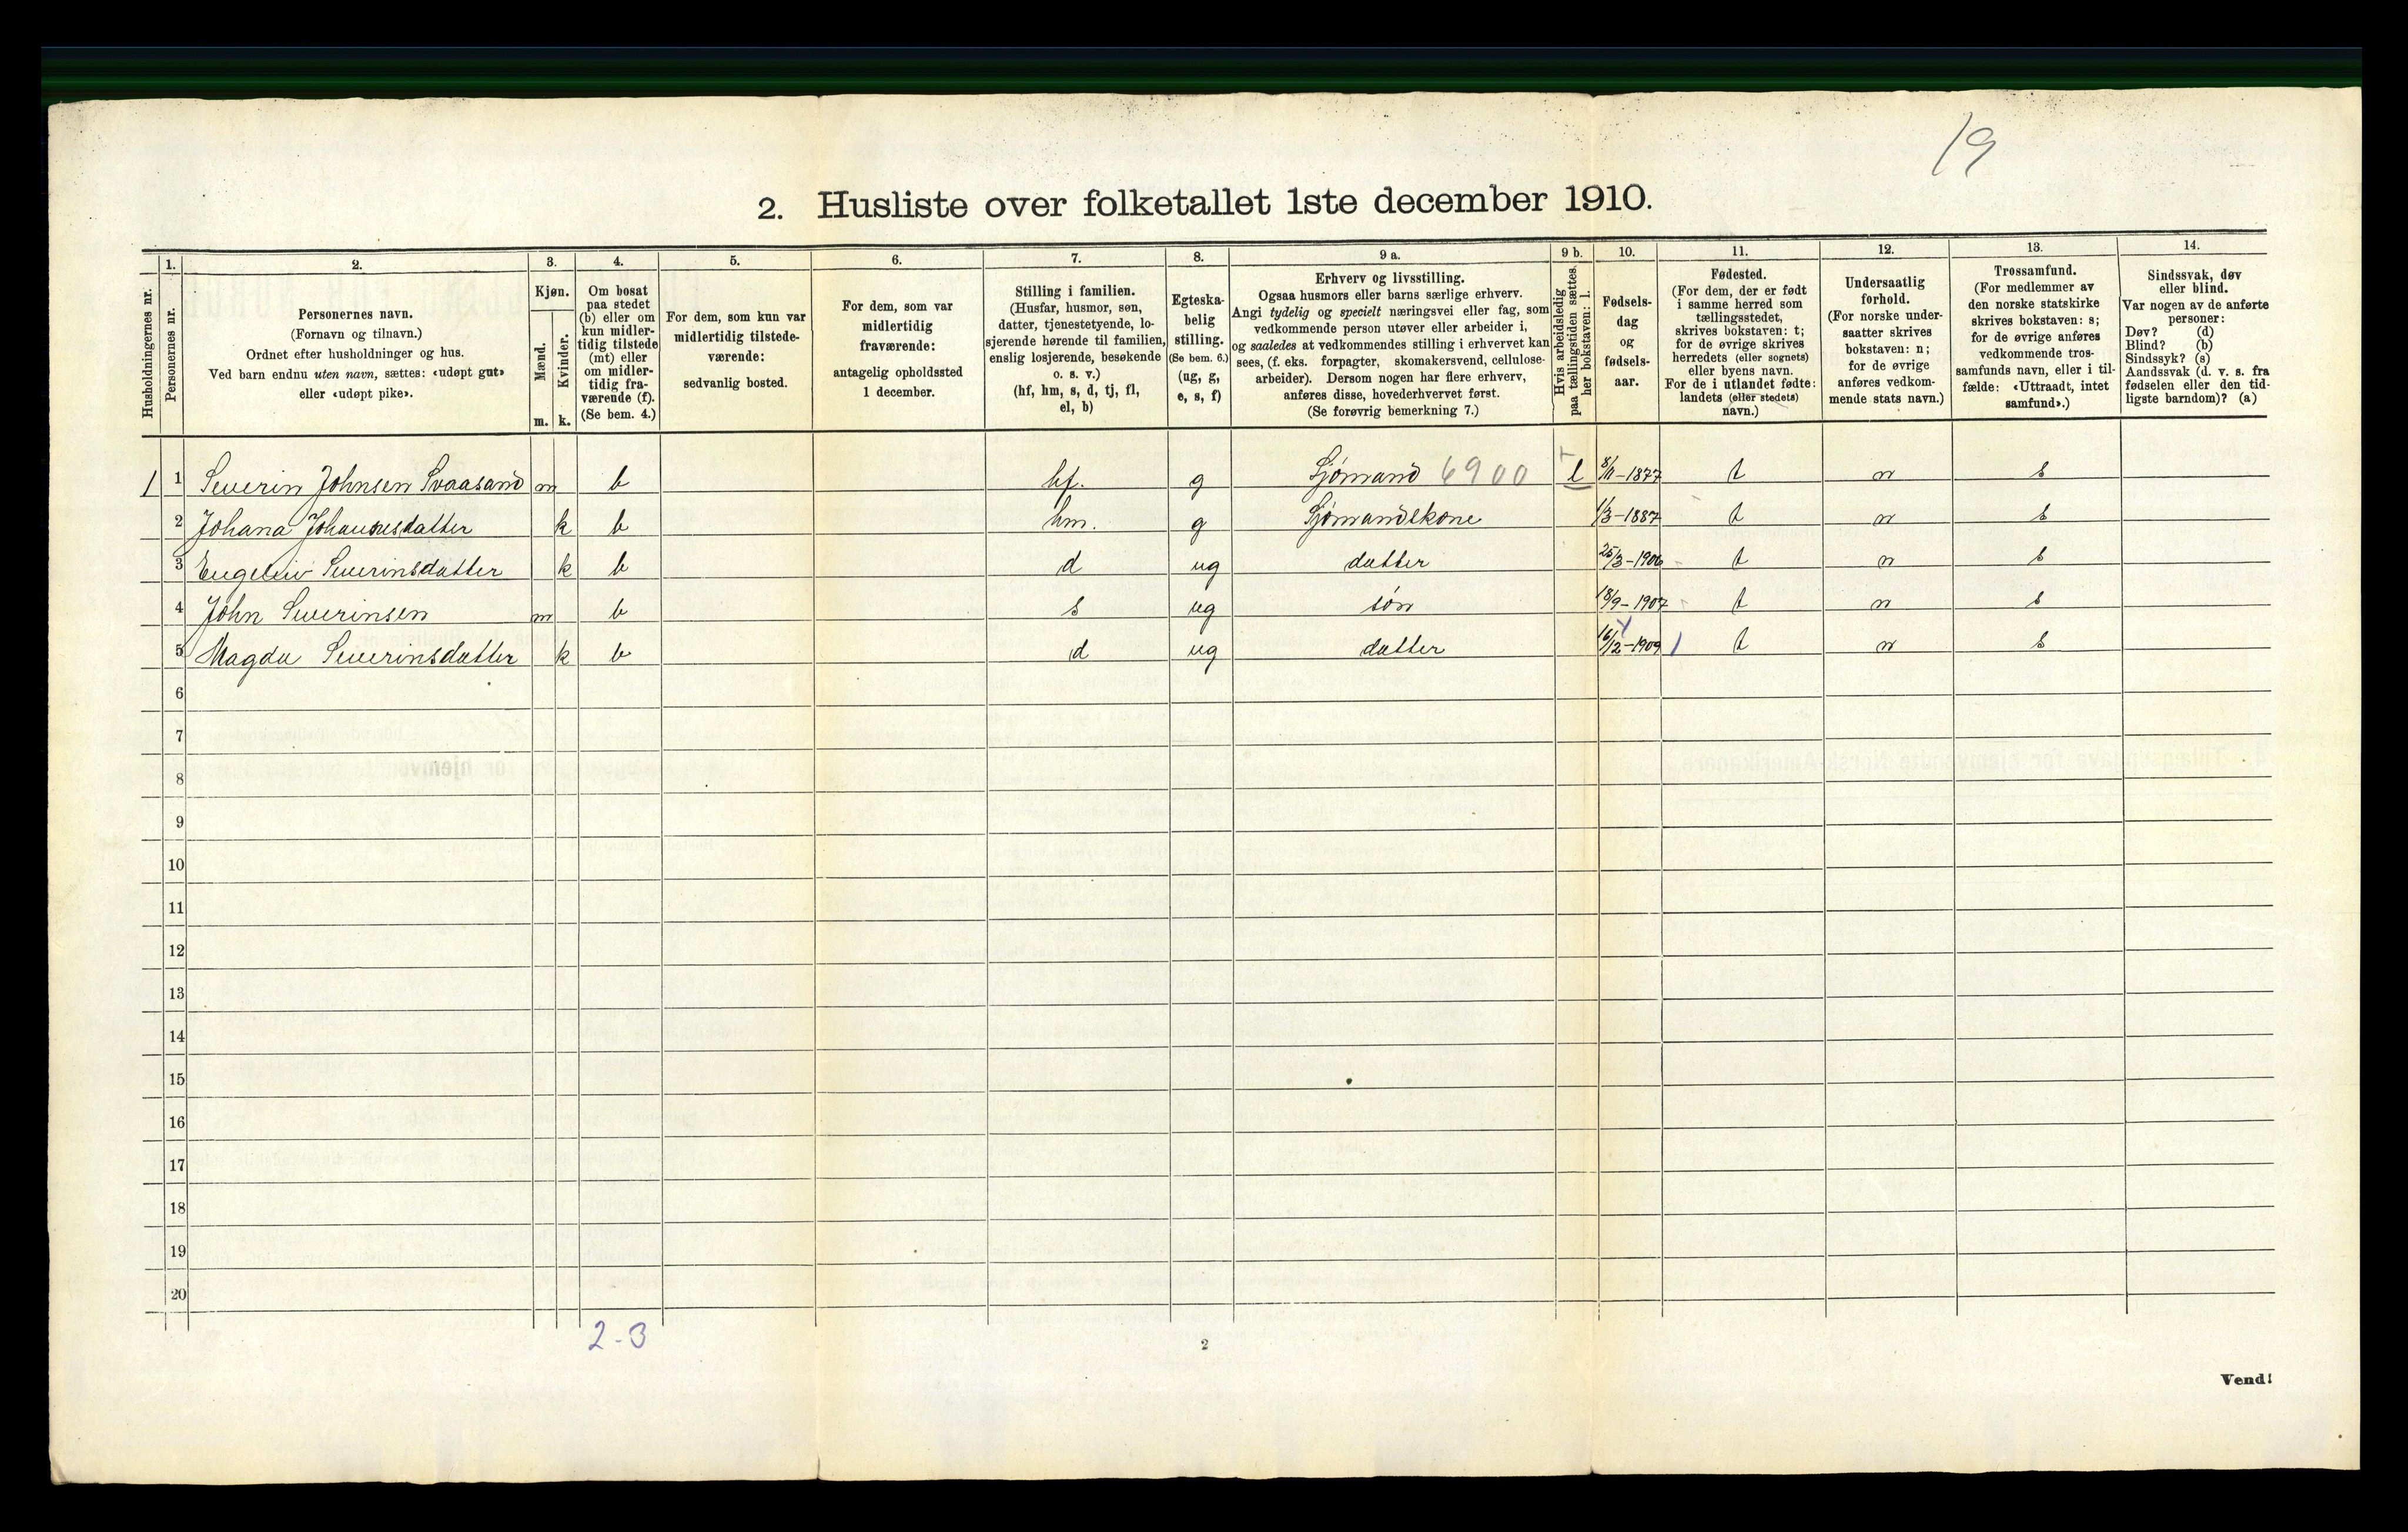 19
2. Husliste over folketallet 1ste december 1910.
Husholdningernes nr.
1.
Personernes nr.
2.
Personernes navn.
(Fornavn og tilnavn.)
Ordnet efter husholdninger og hus.
Ved barn endnu uten navn, sættes: «udøpt gut»
eller «udøpt pike».
3.
Kjøn.
Mænd.
Kvinder.
m. k.
4.
Om bosat
paa stedet
(b) eller om
kun midler-
tidig tilstede
(mt) eller
om midler-
tidig fra-
værende (f).
(Se bem. 4.)
5.
For dem, som kun var
midlertidig tilstede-
værende:
sedvanlig bosted.
6.
For dem, som var
midlertidig
fraværende:
antagelig opholdssted
1 december.
7.
Stilling i familien.
(Husfar, husmor, søn,
datter, tjenestetyende, lo-
sjerende hørende til familien,
enslig losjerende, besøkende
o. s. v.)
(hf, hm, s, d, tj, fl,
el, b)
8.
Egteska-
belig
stilling.
(Se bem. 6.)
(ug, g,
e, s, f)
9 a.
Erhverv og livsstilling.
Ogsaa husmors eller barns særlige erhverv.
Angi tydelig og specielt næringsvei eller fag, som
vedkommende person utøver eller arbeider i,
og saaledes at vedkommendes stilling i erhvervet kan
sees, (f. eks. forpagter, skomakersvend, cellulose-
arbeider). Dersom nogen har flere erhverv,
anføres disse, hovederhvervet først.
(Se forøvrig bemerkning 7.)
9 b.
Hvis arbeidsledig
paa tællingstiden sættes
her bokstaven: l.
10.
Fødsels-
dag
og
fødsels-
aar.
11.
Fødested.
(For dem, der er født
i samme herred som
tællingsstedet,
skrives bokstaven: t;
for de øvrige skrives
herredets (eller sognets)
eller byens navn.
For de i utlandet fødte:
landets (eller stedets)
navn.)
12.
Undersaatlig
forhold.
(For norske under-
saatter skrives
bokstaven: n;
for de øvrige
anføres vedkom-
mende stats navn.)
13.
Trossamfund.
(For medlemmer av
den norske statskirke
skrives bokstaven: s;
for de øvrige anføres
vedkommende tros-
samfunds navn, eller i til-
fælde: «Uttraadt, intet
samfund».)
14.
Sindssvak, døv
eller blind.
Var nogen av de anførte
personer:
Døv? (d)
Blind? (b)
Sindssyk? (s)
Aandssvak (d. v. s. fra
fødselen eller den tid-
ligste barndom)? (a)
1 1 Severin Johnsen Svaasand m b hf. g Sjømand 6900 l 8/11-1877 t n s
2 Johana Johannesdatter k b hm. g Sjømandskone 1/3-1887 t n s
3 Engeleiv Severinsdatter k b d ug datter 25/3-1906 t n s
4 John Severinsen m b s ug søn 18/9-1907 t n s
5 Magda Severinsdatter k b d ug datter 16/12-1909 t n s
6
7
8
9
10
11
12
13
14
15
16
17
18
19
20
2-3
2
Vend!